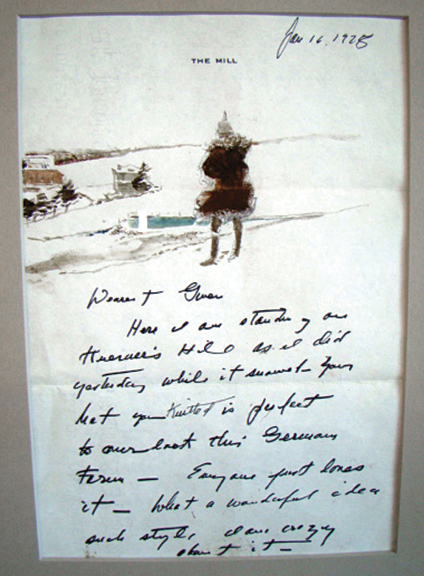 Jan 16, 1978
THE MILL
Dearest Gwen
Here I am standing on
Kuerner's Hill as I did
yesterday while it snowed — Your
hat you knitted is perfect
to this German
Farm — Everyone just loves
it — What a wonderful idea
such style. I am crazy
about it —